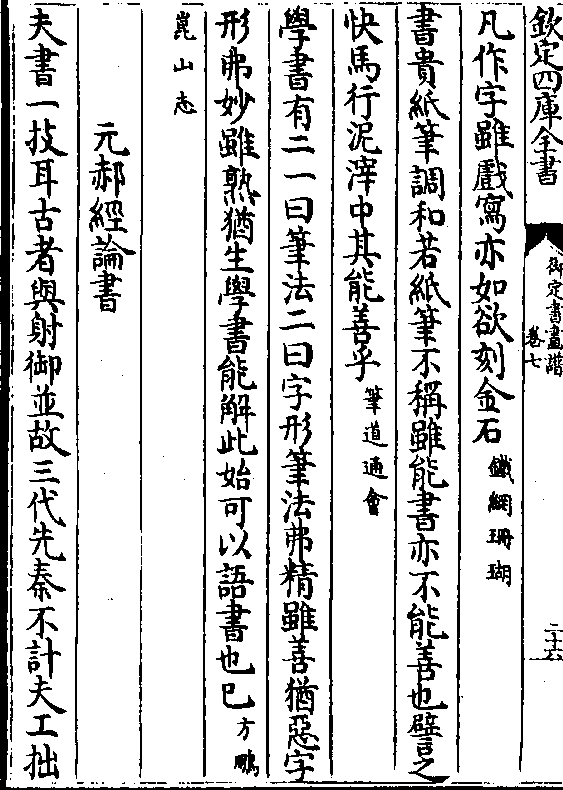 欽定四庫全書
御定書畫譜
卷七
二十六
凡作字雖戲寫亦如欲刻金石鐵網珊瑚
書貴紙筆調和若紙筆不稱雖能書亦不能善也譬之
快馬行泥滓中其能善乎筆道通會
學書有二一曰筆法二曰字形筆法弗精雖善猶惡字
形弗妙雖熟猶生學書能解此始可以語書也已方鵬
崑山志
元郝經論書
夫書一技耳古者與射御並故三代先秦不計夫工拙